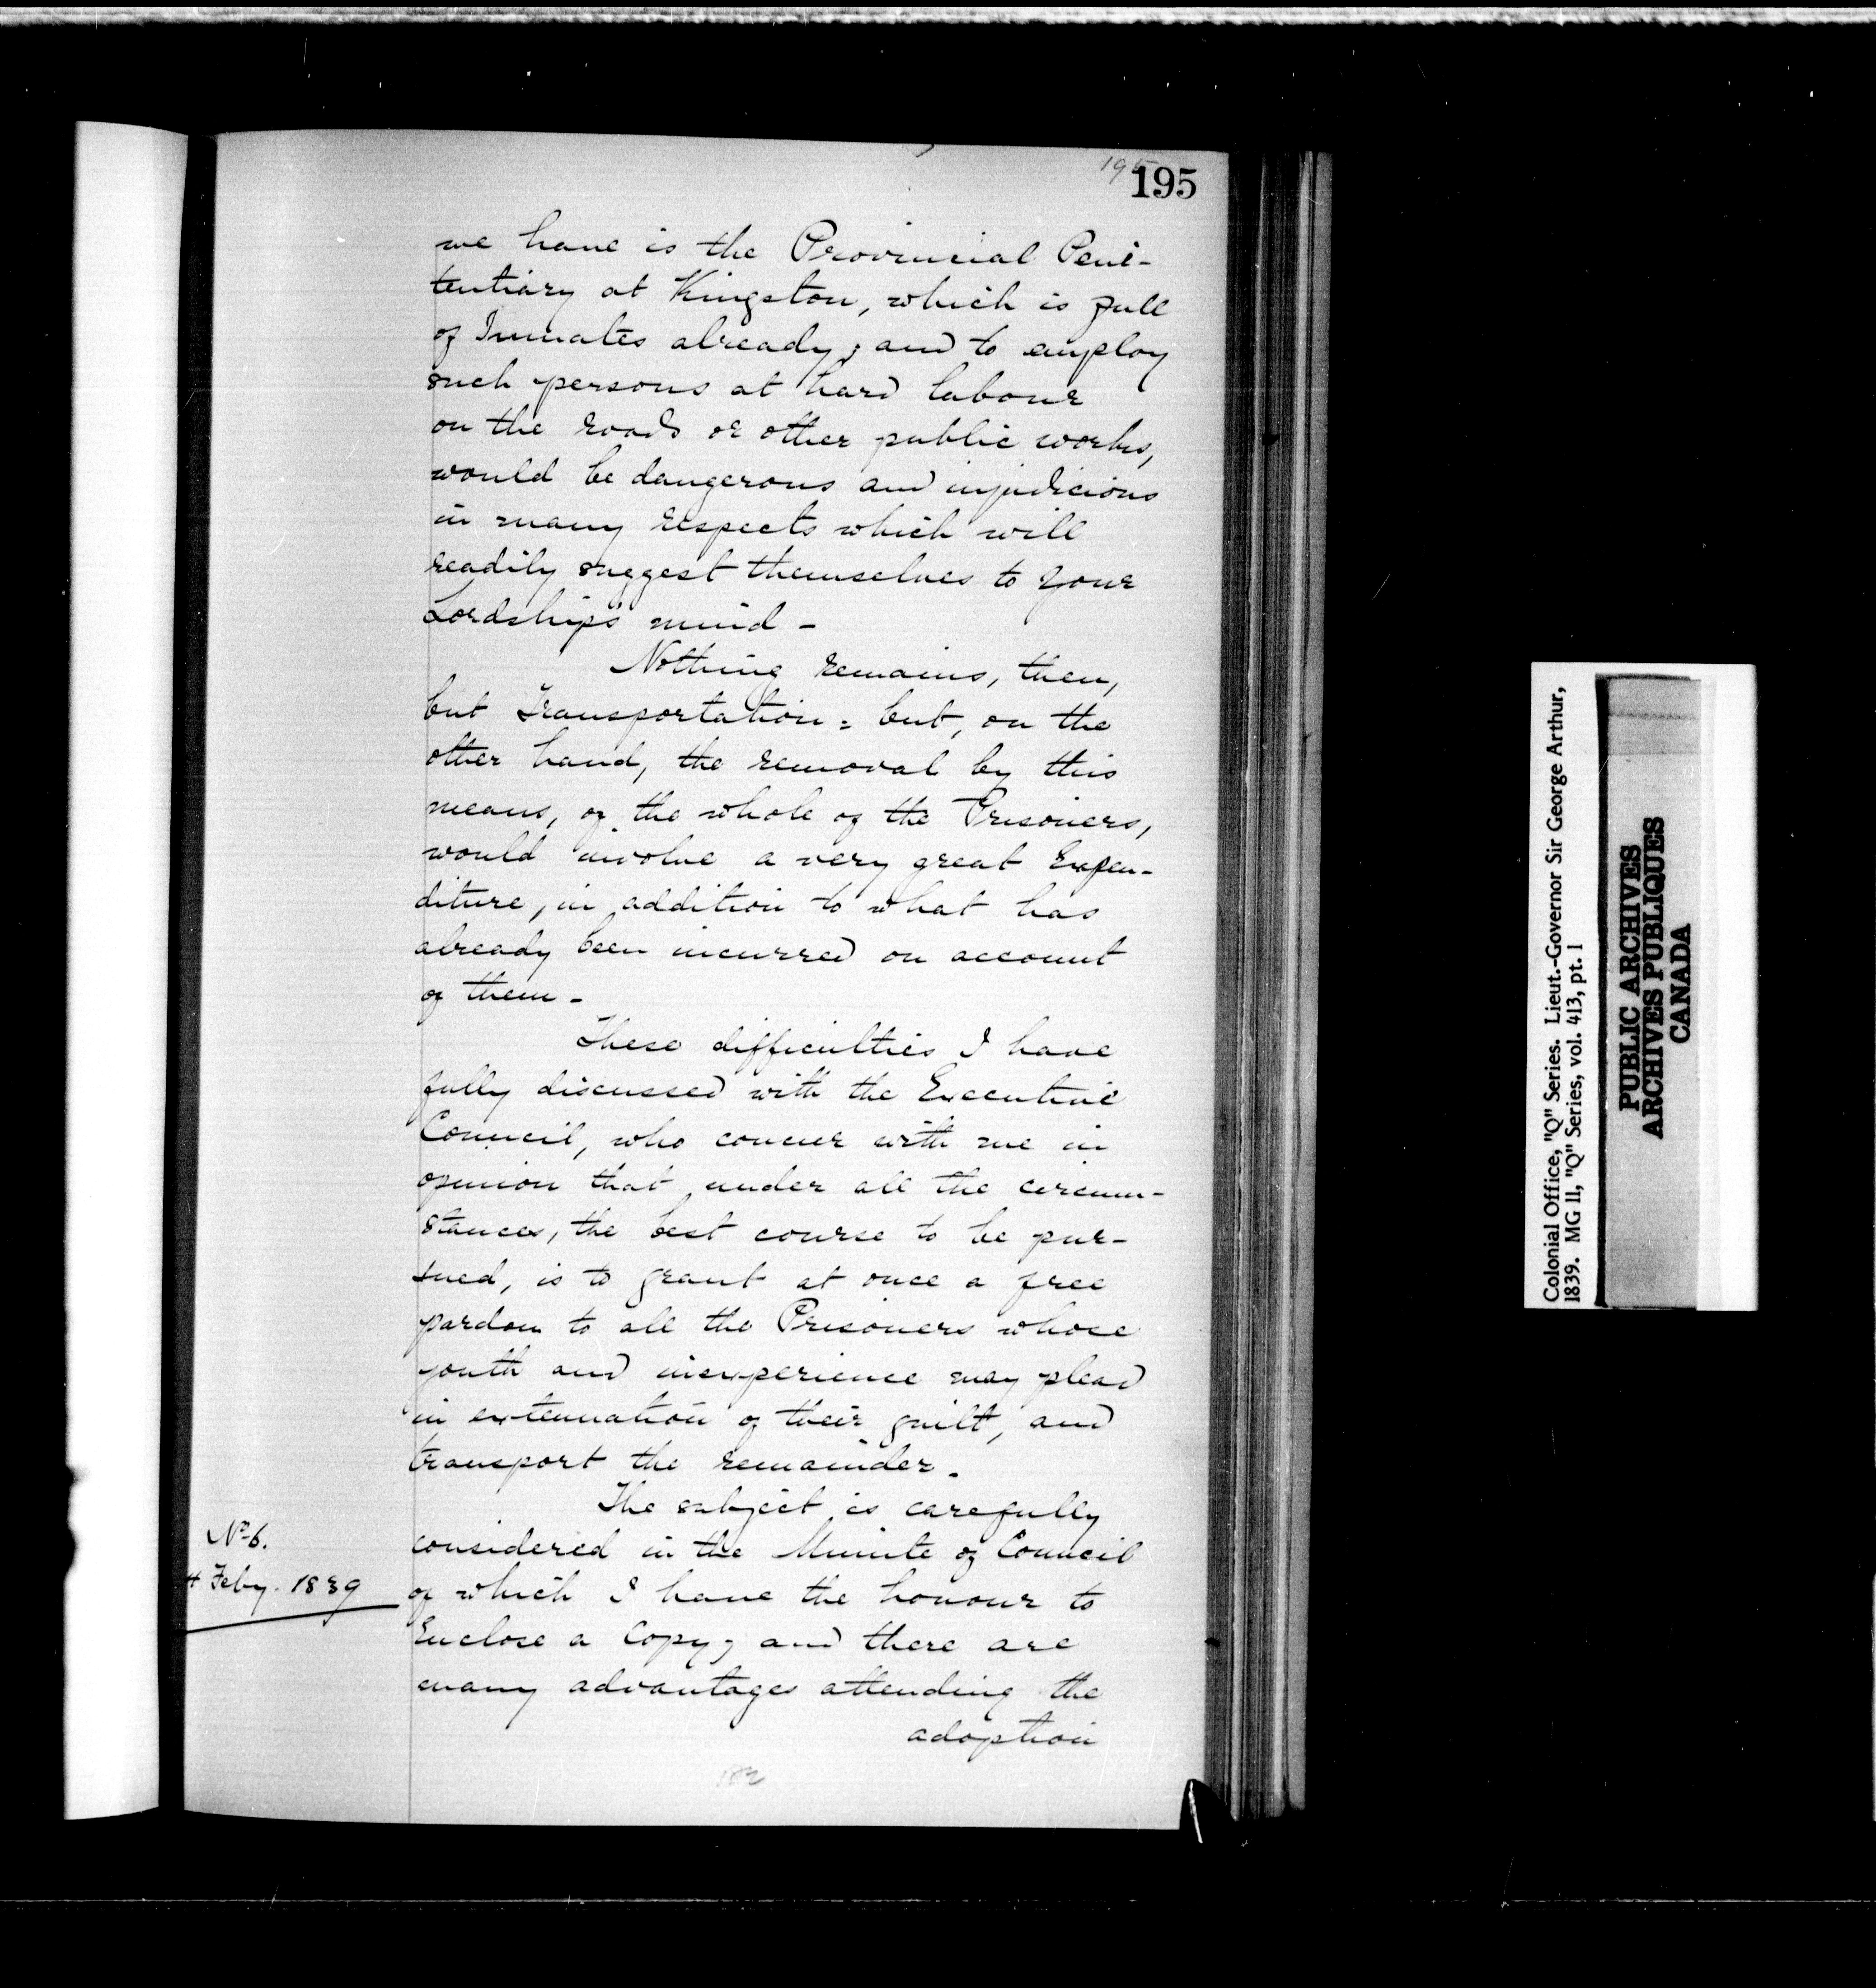 195
195
we have is the Provincial Peni-
tentiary at Kingston, which is full
of Inmates already; and to employ
such persons at hard labour
on the roads or other public works,
would be dangerous and injudicious
in many respects which will
readily suggest themselves to Your
Lordship's mind -
Nothing remains, then,
but Transportation: but, on the
other hand, the removal by this
means, of the whole of the Prisoners,
would involve a very great Expen-
diture, in addition to what has
already been incurred on account
of them -
These difficulties I have
fully discussed with the Executive
Council, who concur with me in
opinion that under all the circum-
stances, the best course to be pur-
sued, is to grant at once a free
pardon to all the Prisoners whose
youth and inexperience may plead
in extenuation of their guilt, and
transport the remainder.
The subject is carefully
No 6.
considered in the Minute of Council
4 Feby. 1839
of which I have the honour to
Enclose a Copy; and there are
many advantages attending the
adoption
Colonial Office, "Q" Series. Lieut.-Governor Sir George Arthur,
1839. MG 11, "Q" Series, vol. 413, pt. 1
PUBLIC ARCHIVES
ARCHIVES PUBLIQUES
CANADA